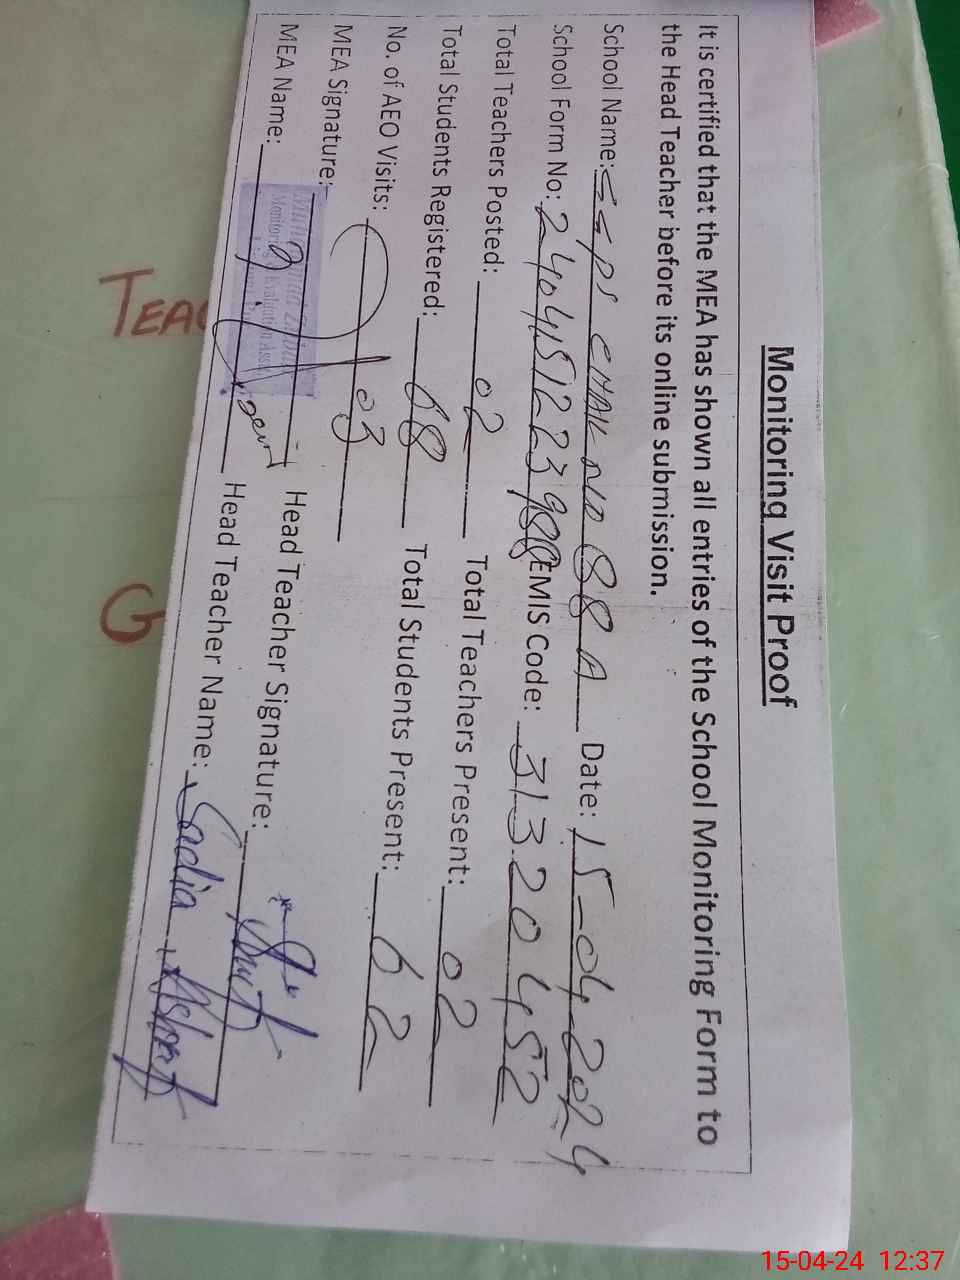 Monitoring Visit Proof
It is certified that the MEA has shown all entries of the School Monitoring Form to
the Head Teacher before its online submission.
School Name: GGPS CHAK NO 88 A Date: 15-04-2024
School Form No: 24045122398 EMIS Code: 31320452
Total Teachers Posted: 02 Total Teachers Present: 02
Total Students Registered: 68 Total Students Present: 62
No. of AEO Visits: 03
MEA Signature: Head Teacher Signature:
MEA Name: Head Teacher Name: Sadia Ashraf
Monitoring
TEAC
G
15-04-24 12:37